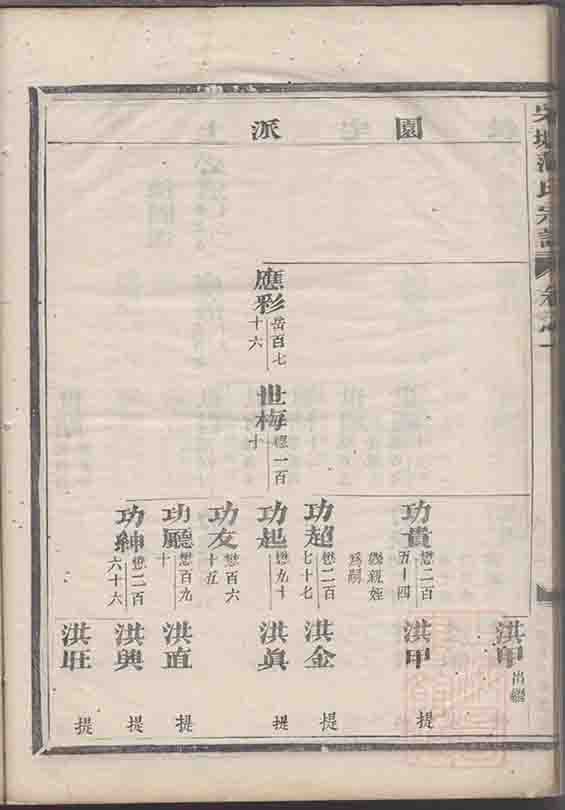 宗譜
卷之一
園
派
洪甲 出繼
功貴 懋二百五十四
繼親姪爲嗣
洪甲 提
功超 懋二百七十七
洪金 提
應彩 岳百七十六
世梅 標一百十
功起 懋九十
洪眞 提
功友 懋百六十五
功廳 懋百九十
洪直 提
功紳 懋二百六十六
洪興 提
洪旺 提